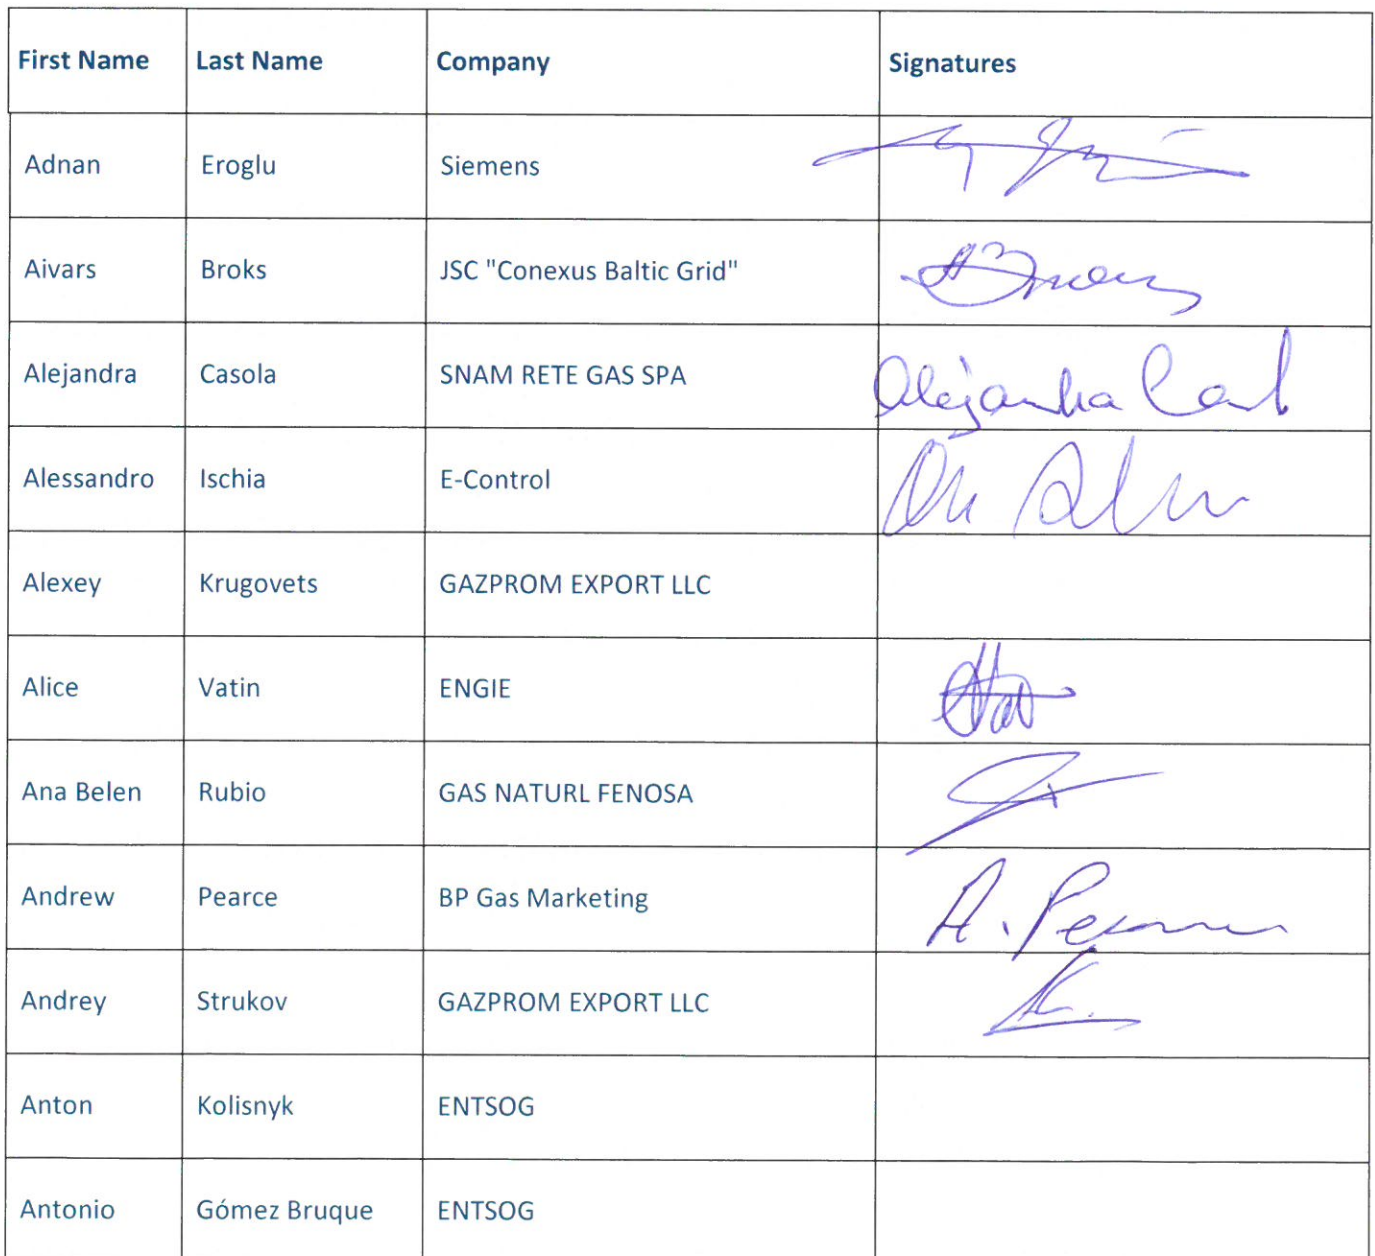 First Name Last Name Company Signatures
Adnan Eroglu Siemens
Aivars Broks JSC "Conexus Baltic Grid"
Alejandra Casola SNAM RETE GAS SPA Alejandra
Alessandro Ischia E-Control
Alexey Krugovets GAZPROM EXPORT LLC
Alice Vatin ENGIE
Ana Belen Rubio GAS NATURL FENOSA
Andrew Pearce BP Gas Marketing A.
Andrey Strukov GAZPROM EXPORT LLC
Anton Kolisnyk ENTSOG
Antonio Gómez Bruque ENTSOG